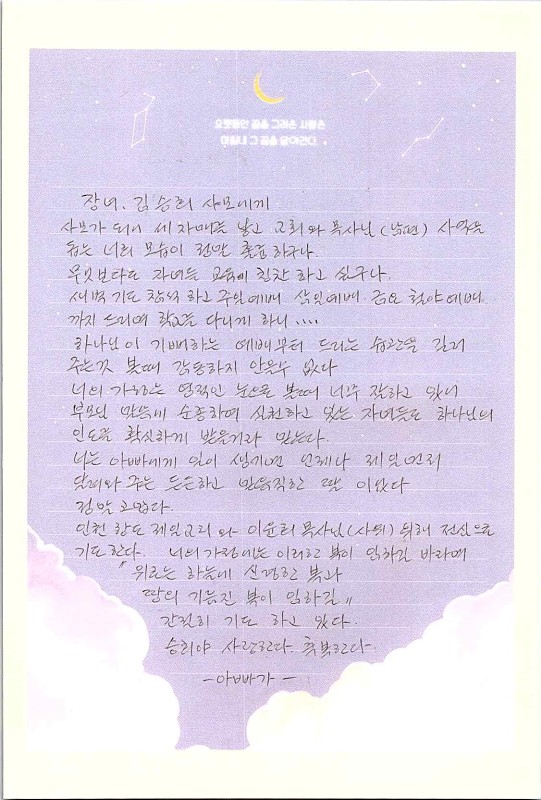 오랫동안 꿈을 그리는 사람은
마침내 그 꿈을 닮아간다.
장녀, 김승희 사모에게
사모가 되어 세 자매를 낳고 교회와 목사님(남편) 사역을
돕는 너의 모습이 정말 훌륭하구나.
무엇보다도 자녀들 교육에 칭찬 하고 싶구나.
새벽 기도 참석 하고 주일예배 삼일예배 금요 철야예배
까지 드리며 학교를 다니게 하니 ....
하나님이 기뻐하는 예배부터 드리는 습관을 길러
주는것 볼때 감동하지 안을수 없다
너의 가정은 영적인 눈으로 볼때 너무 잘하고 있니
부모님 말씀에 순종하며 실천하고 있는 자녀들도 하나님의
인도를 확실하게 받을거라 믿는다.
너는 아빠에게 일이 생기면 언제나 제일먼저
달려와 주는 든든하고 믿음직한 딸 이었다
정말 고맙다.
인천 강도제일교회와 이윤희 목사님(사위) 위해 전심으로
기도한다. 너의 가정에는 이러한 복이 임하길 바라며
"위로는 하늘에 신령한 복과
땅의 기름진 복이 임하길"
간절히 기도 하고 있다.
승희야 사랑한다 축복한다.
- 아빠가 -